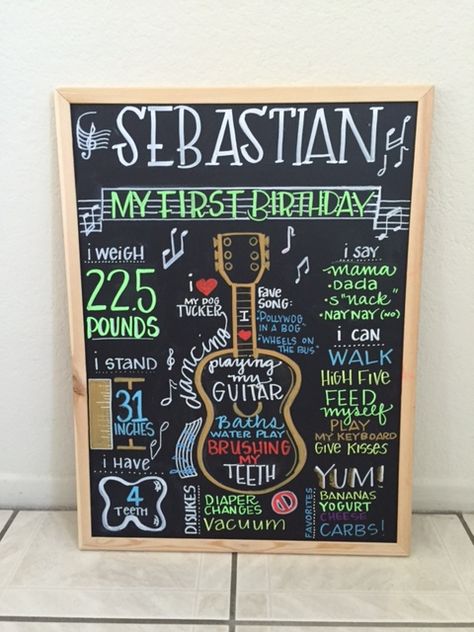 SEBASTIAN
MY FIRST BIRTHDAY
i WEIGH
22.5
POUNDS
i STAND
31
INCHES
i HAVE
4
TEETH
i ♥
MY DOG
TUCKER
FAVE
SONG:
"POLLYWOG
IN A BOG"
"WHEELS ON
THE BUS"
I
♥
dancing
playing
my
GUITAR
Baths
WATER PLAY
BRUSHING
MY
TEETH
DISLIKES
DIAPER
CHANGES
Vacuum
i SAY
-mama
-DADA
-S"nack"
-NAY NAY (NO)
i CAN
WALK
HIGH FIVE
FEED
myself
PLAY
MY KEYBOARD
GIVE KISSES
YUM!
FAVORITES
BANANAS
YOGURT
CHEESE
CARBS!